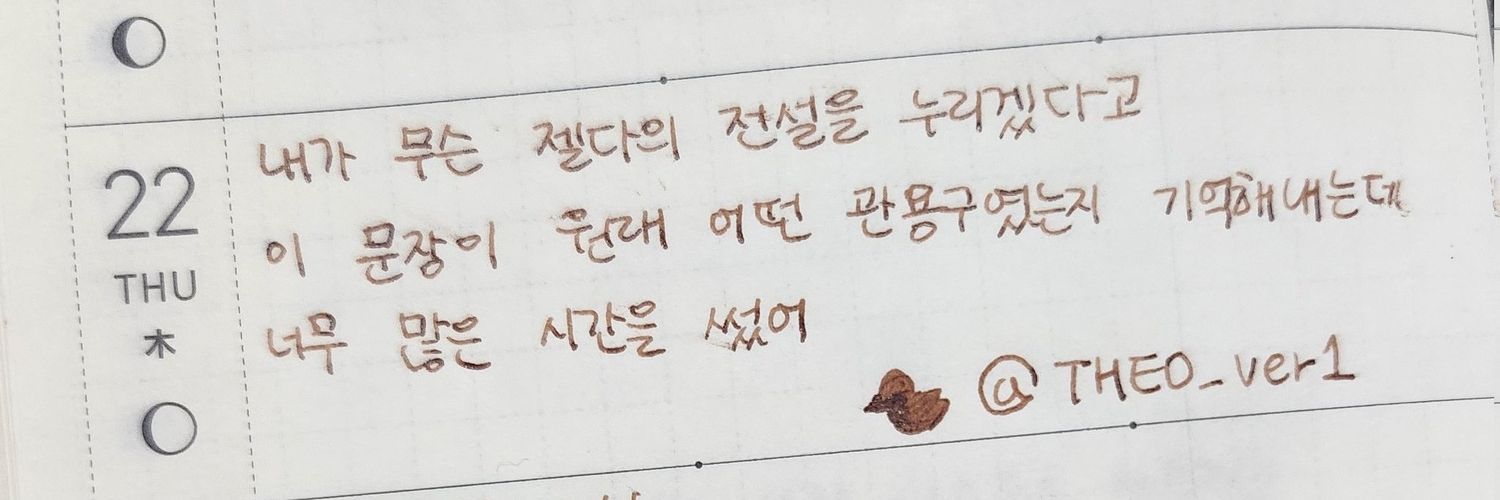 내가 무슨 젤다의 전설을 누리겠다고
22
이 문장이 원래 어떤 관용구였는지 기억해내는데
THU
너무 많은 시간을 썼어
木
@THEO_ver1